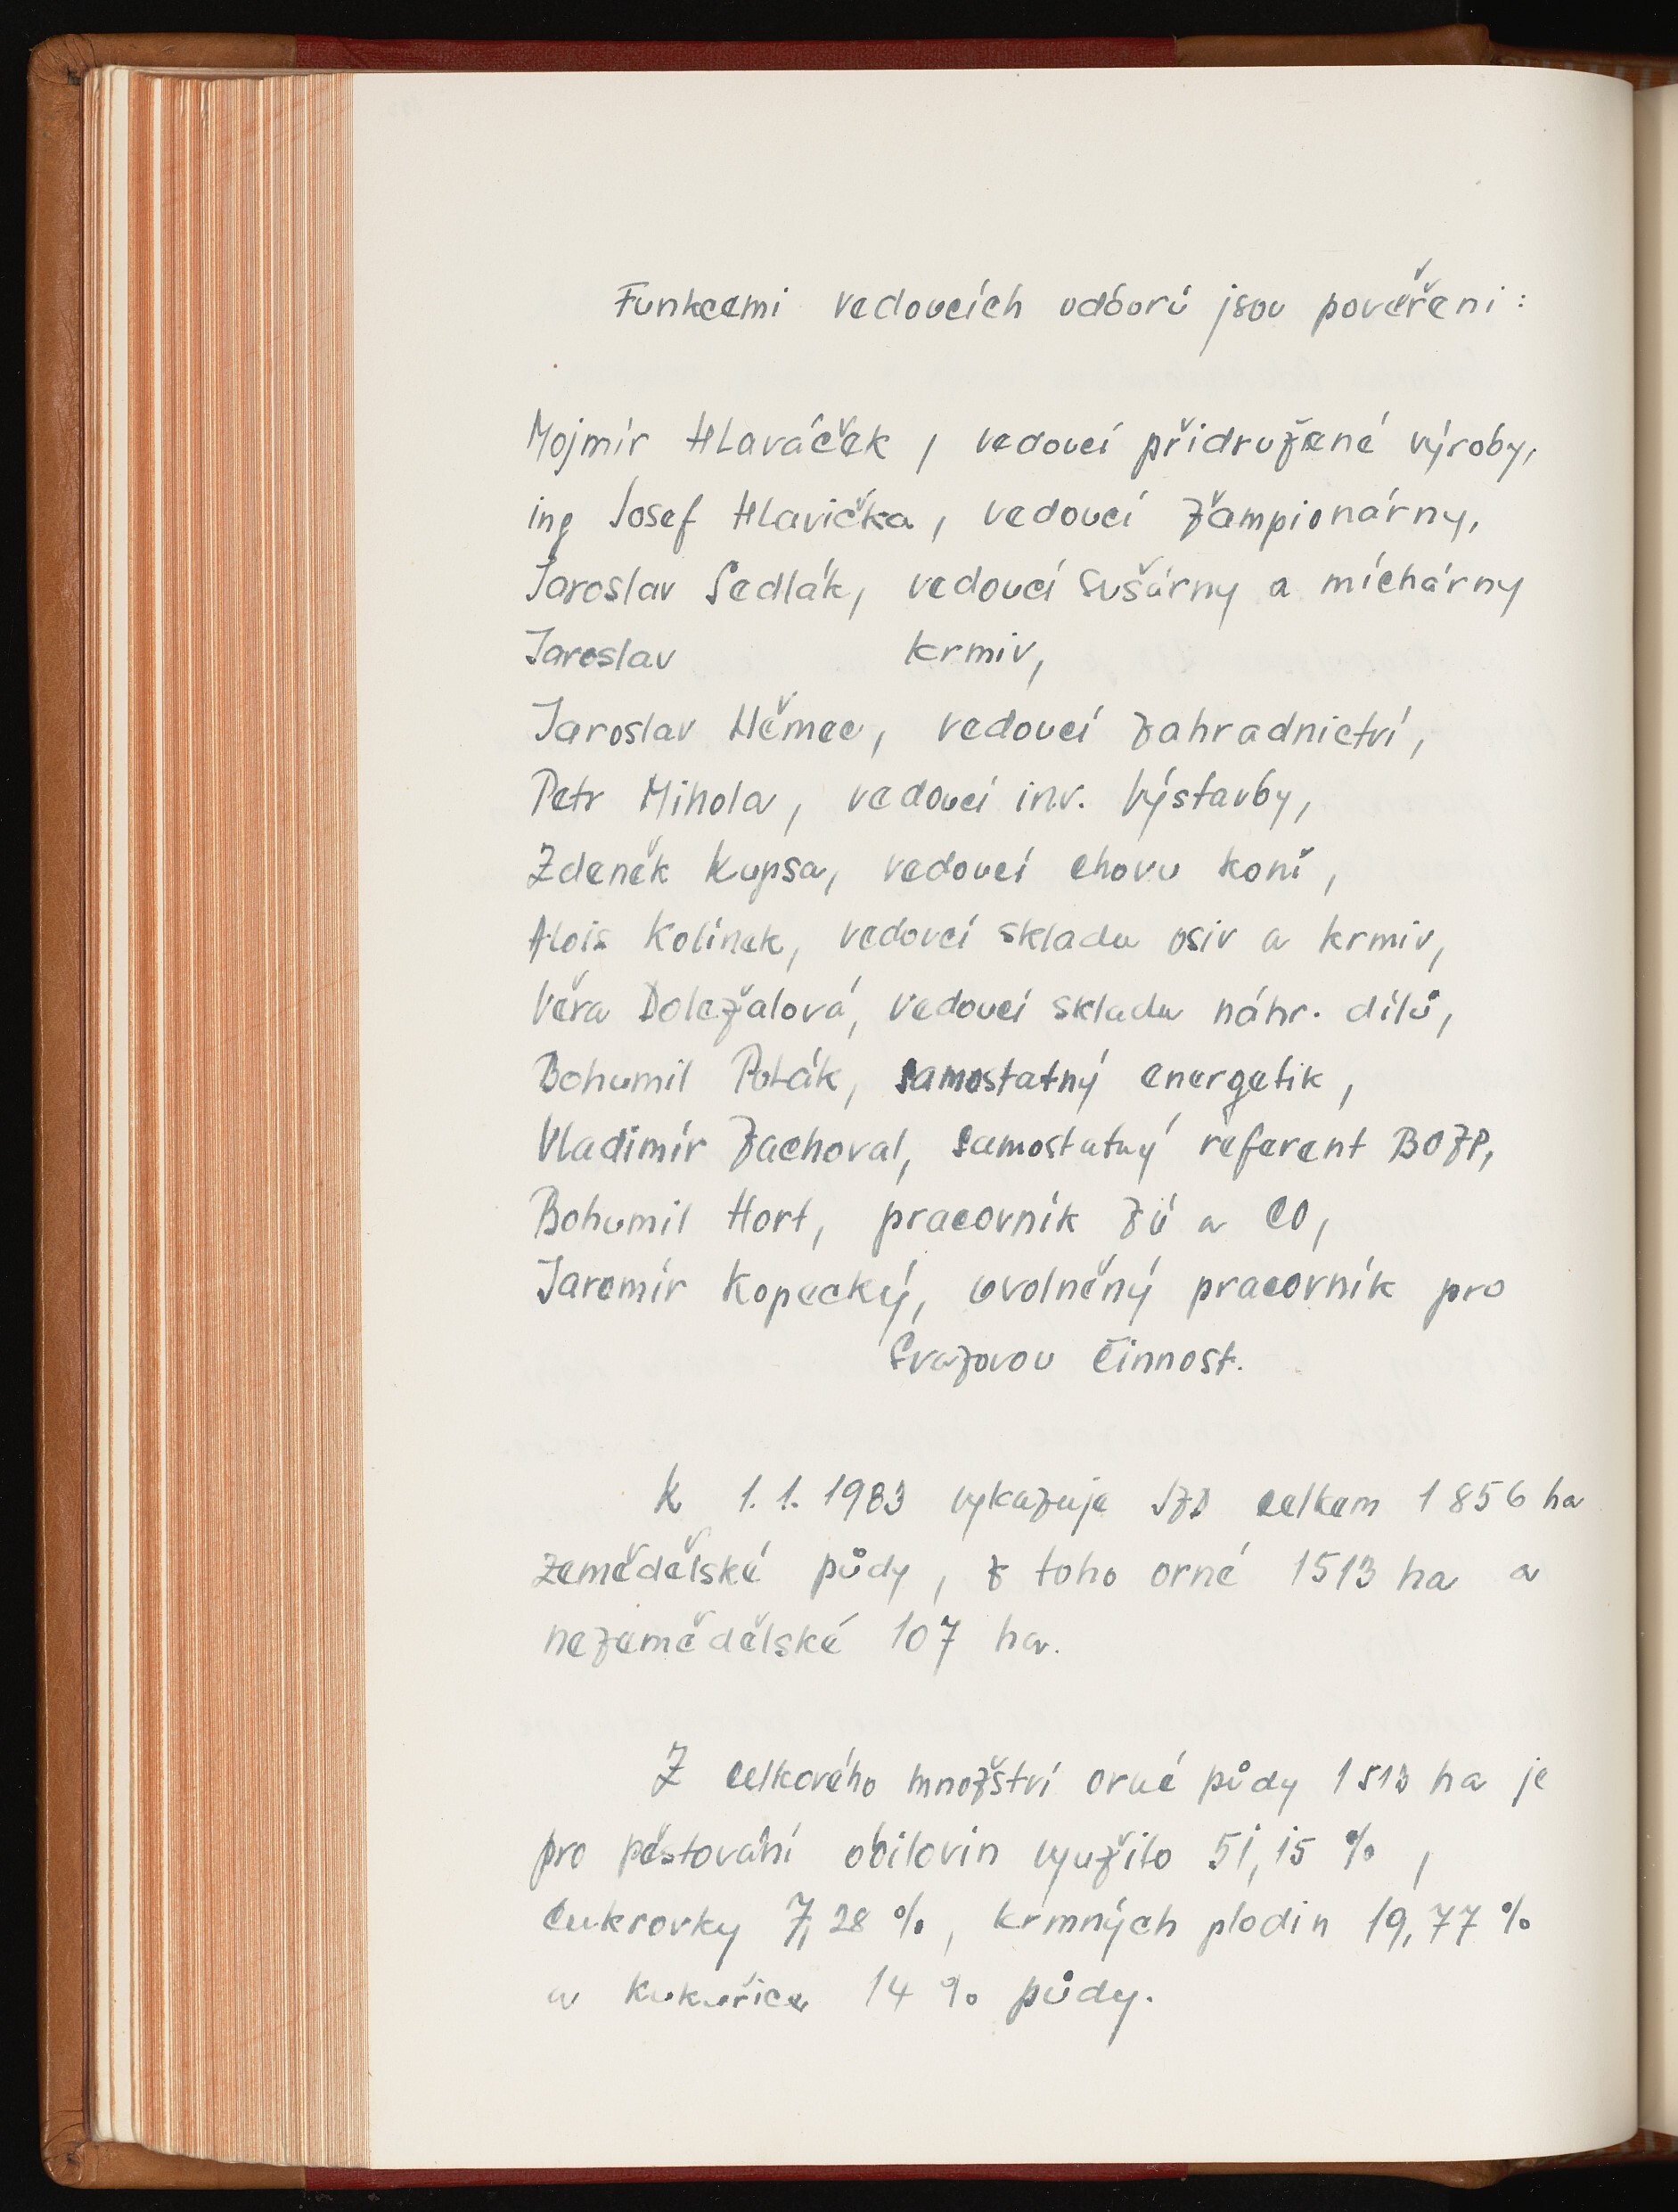 Funkcemi vedoucích odborů jsou pověřeni:
Mojmír Hlaváček, vedoucí přidružené výroby,
ing Josef Hlavička, vedoucí žampionárny,
Jaroslav Sedlák, vedoucí sušárny a míchárny
Jaroslav krmiv,
Jaroslav Němec, vedoucí zahradnictví,
Petr Mihola, vedoucí inv. výstavby,
Zdeněk Kupsa, vedoucí chovu koní,
Alois Kolínek, vedoucí skladu osiv a krmiv,
Věra Doležalová, vedoucí skladu náhr. dílů,
Bohumil Polák, samostatný energetik,
Vladimír Zachoval, samostatný referent BOZP,
Bohumil Hort, pracovník ZÚ a CO,
Jaromír Kopecký, uvolněný pracovník pro
svazovou činnost.
K 1.1.1983 vykazuje JZD celkem 1856 ha
zemědělské půdy, z toho orné 1513 ha a
nezemědělské 107 ha.
Z celkového množství orné půdy 1513 ha je
pro pěstování obilovin využito 51,15 %,
cukrovky 7,28 %, krmných plodin 19,77 %
a kukuřice 14 % půdy.